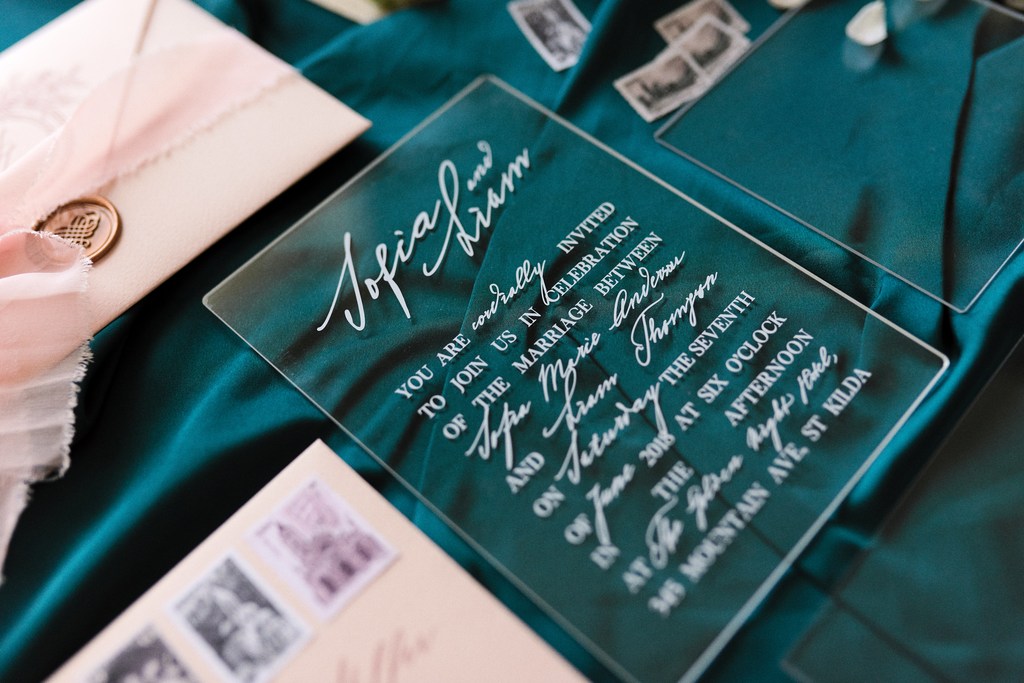 Sofia and
Liam
YOU ARE cordially INVITED
TO JOIN US IN CELEBRATION
OF THE MARRIAGE BETWEEN
Sofia Marie Anderson
AND Liam Thompson
ON Saturday THE SEVENTH
OF June 2018 AT SIX O'CLOCK
IN THE AFTERNOON
AT The Golden Night Hotel,
345 MOUNTAIN AVE, ST KILDA